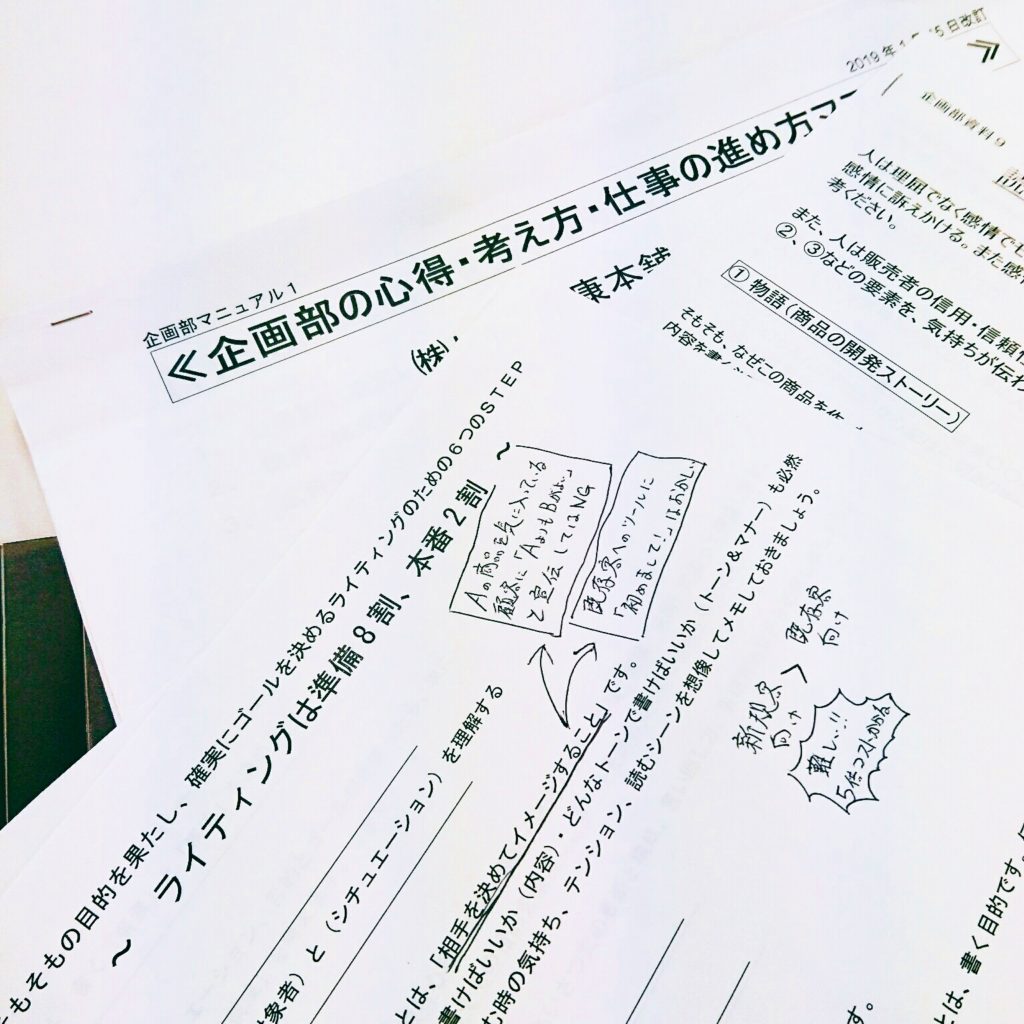 2019年
5日改訂
企画部マニュアル1
≪企画部の心得・考え方・仕事の進め方マ
≫
(株)
東本舗
企画部資料9
人は理屈でなく感情でモ
感情に訴えかける。また感
考ください。
また、人は販売者の信用・信頼
②、③などの要素を、気持ちが伝わ
①物語(商品の開発ストーリー)
そもそも、なぜこの商品を作
内容を書
もそもの目的を果たし、確実にゴールを決めるライティングのための6つのSTEP
~ライティングは準備8割、本番2割~
象者)と(シチュエーション)を理解する
Aの商品を気に入っている
顧客に「AよりもBがよい」
と宣伝してはNG
既存客へのツールに
「初めまして!」はおかしい
とは、「相手を決めてイメージすること」です。
書けばいいか(内容)・どんなトーンで書けばいいか(トーン&マナー)も必然
む時の気持ち、テンション、読むシーンを想像してメモしておきましょう。
新規客
向け
>
既存客
向け
難しい!!
5倍コストかかる
す。
とは、書く目的です。